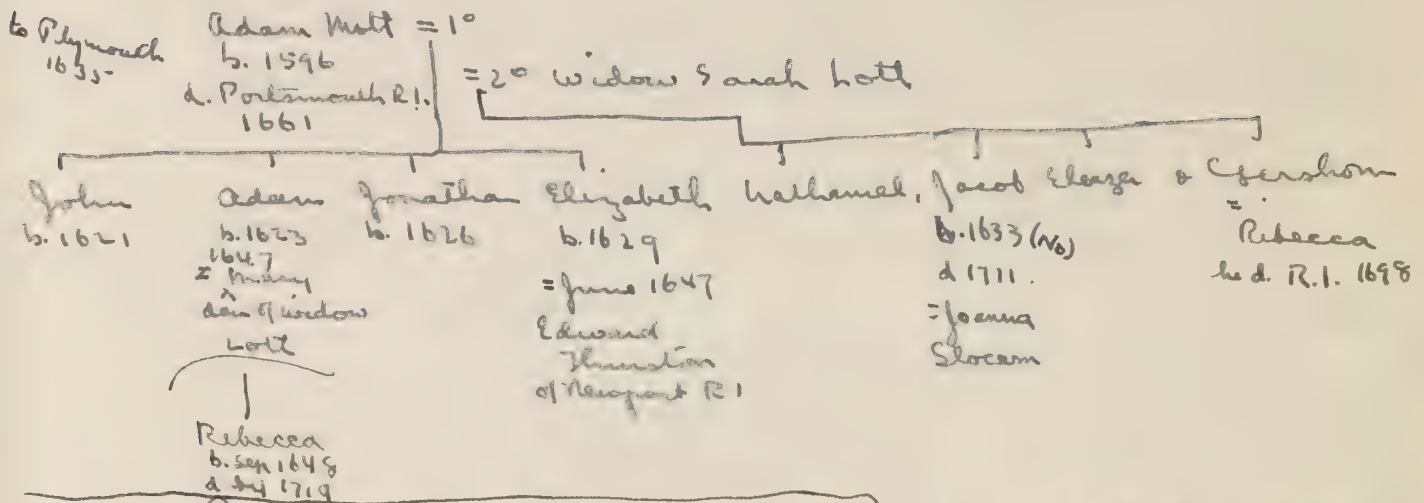 to Plymouth
1635
Adam Mott = 1°
b. 1596
d. Portsmouth R.I.
1661
= 2° Widow Sarah Lott
John
b. 1621
Adam
b. 1623
1647
= Mary
dau of widow
Lott
Jonathan
b. 1626
Elizabeth
b. 1629
= June 1647
Edward
Thurston
of Newport R I
Nathaniel,
Jacob
b. 1633 (No)
d 1711.
= Joanna
Slocum
Eleazer &
Gershom
=
Rebecca
he d. R.I. 1698
Rebecca
b. sep 1648
d 1719